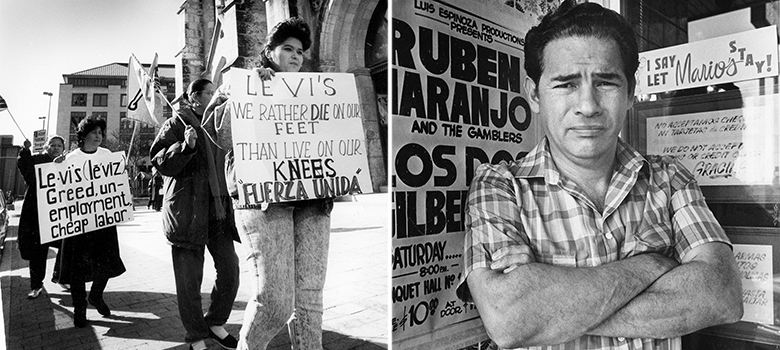 Le·vis (lē·viz)
Greed, un-
employment,
Cheap labor.
LEVI'S
WE RATHER DIE ON OUR
FEET
THAN LIVE ON OUR
KNEES
"FUERZA UNIDA"
LUIS ESPINOZA PRODUCTIONS
PRESENTS
RUBEN
NARANJO
AND THE GAMBLERS
LOS DOS
GILBE
SATURDAY
8:00 PM
QUET HALL No
$10.00
AT DOOR
I SAY
LET Mario's STAY!
NO ACEPTAMOS CHE
NI TARJETAS DE CREDI
WE DO NOT ACCEPT
OR CREDIT
GRACIAS